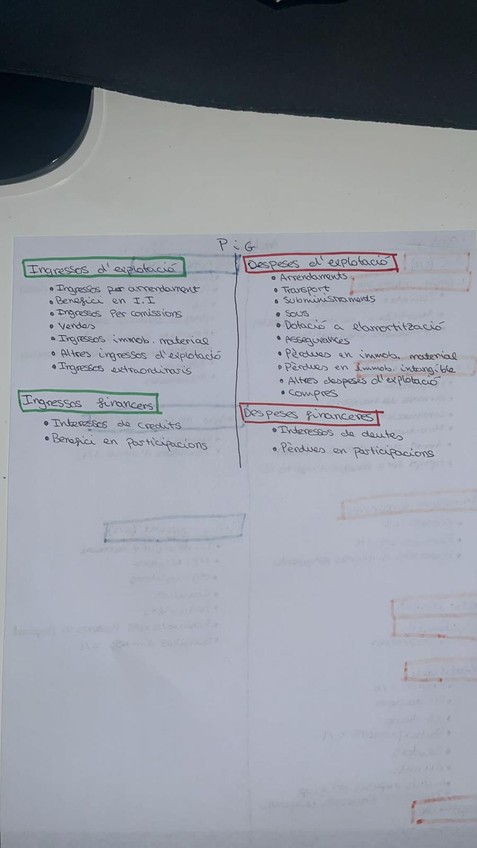 P i G
Ingressos d'explotació
• Ingressos per arrendament
• Benefici en I.I
• Ingressos Per comissions
• Vendes
• Ingressos immob. material
• Altres ingressos d'explotació
• Ingressos extraordinaris
Ingressos financers
• Interessos de credits
• Benefici en participacions
Despeses d'explotació
• Arrendaments
• Transport
• Subministraments
• Sous
• Dotació a elamortització
• Assegurances
• Pèrdues en immob. material
• Pèrdues en immob. intangible
• Altres despeses d'explotació
• Compres
Despeses financeres
• Interessos de deutes
• Pèrdues en participacions